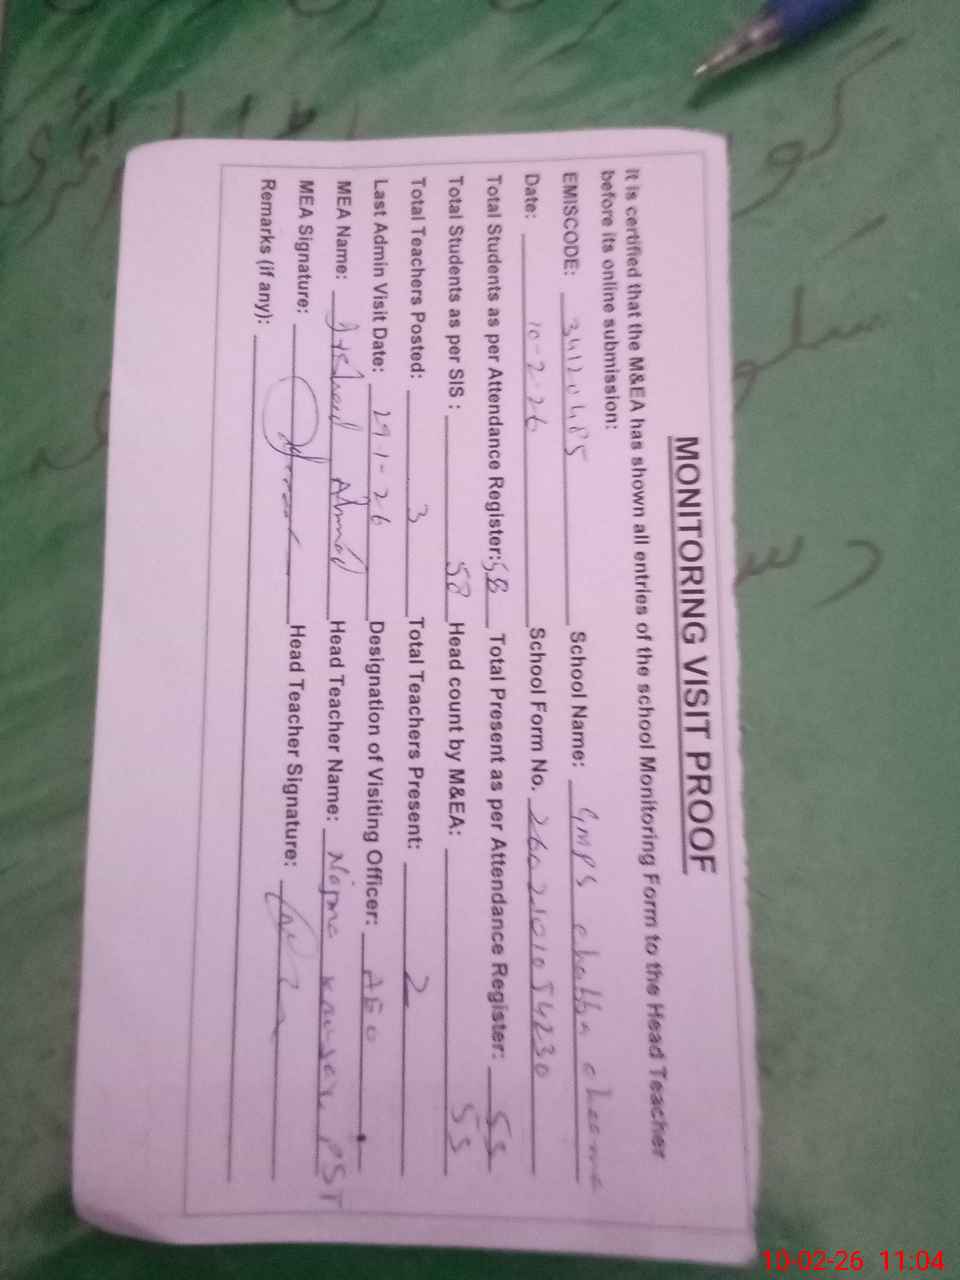 MONITORING VISIT PROOF
It is certified that the M&EA has shown all entries of the school Monitoring Form to the Head Teacher
before its online submission:
EMISCODE: 34120485 School Name: GMPS chabba cheema
Date: 10-2-26 School Form No. 
Total Students as per Attendance Register: 58 Total Present as per Attendance Register: 55
Total Students as per SIS : 58 Head count by M&EA: 55
Total Teachers Posted: 3 Total Teachers Present: 2
Last Admin Visit Date: 29-1-26 Designation of Visiting Officer: AEO
MEA Name: Ahmad Head Teacher Name: Najma Kausar, PST
MEA Signature: Head Teacher Signature:
Remarks (if any):
10-02-26 11:04